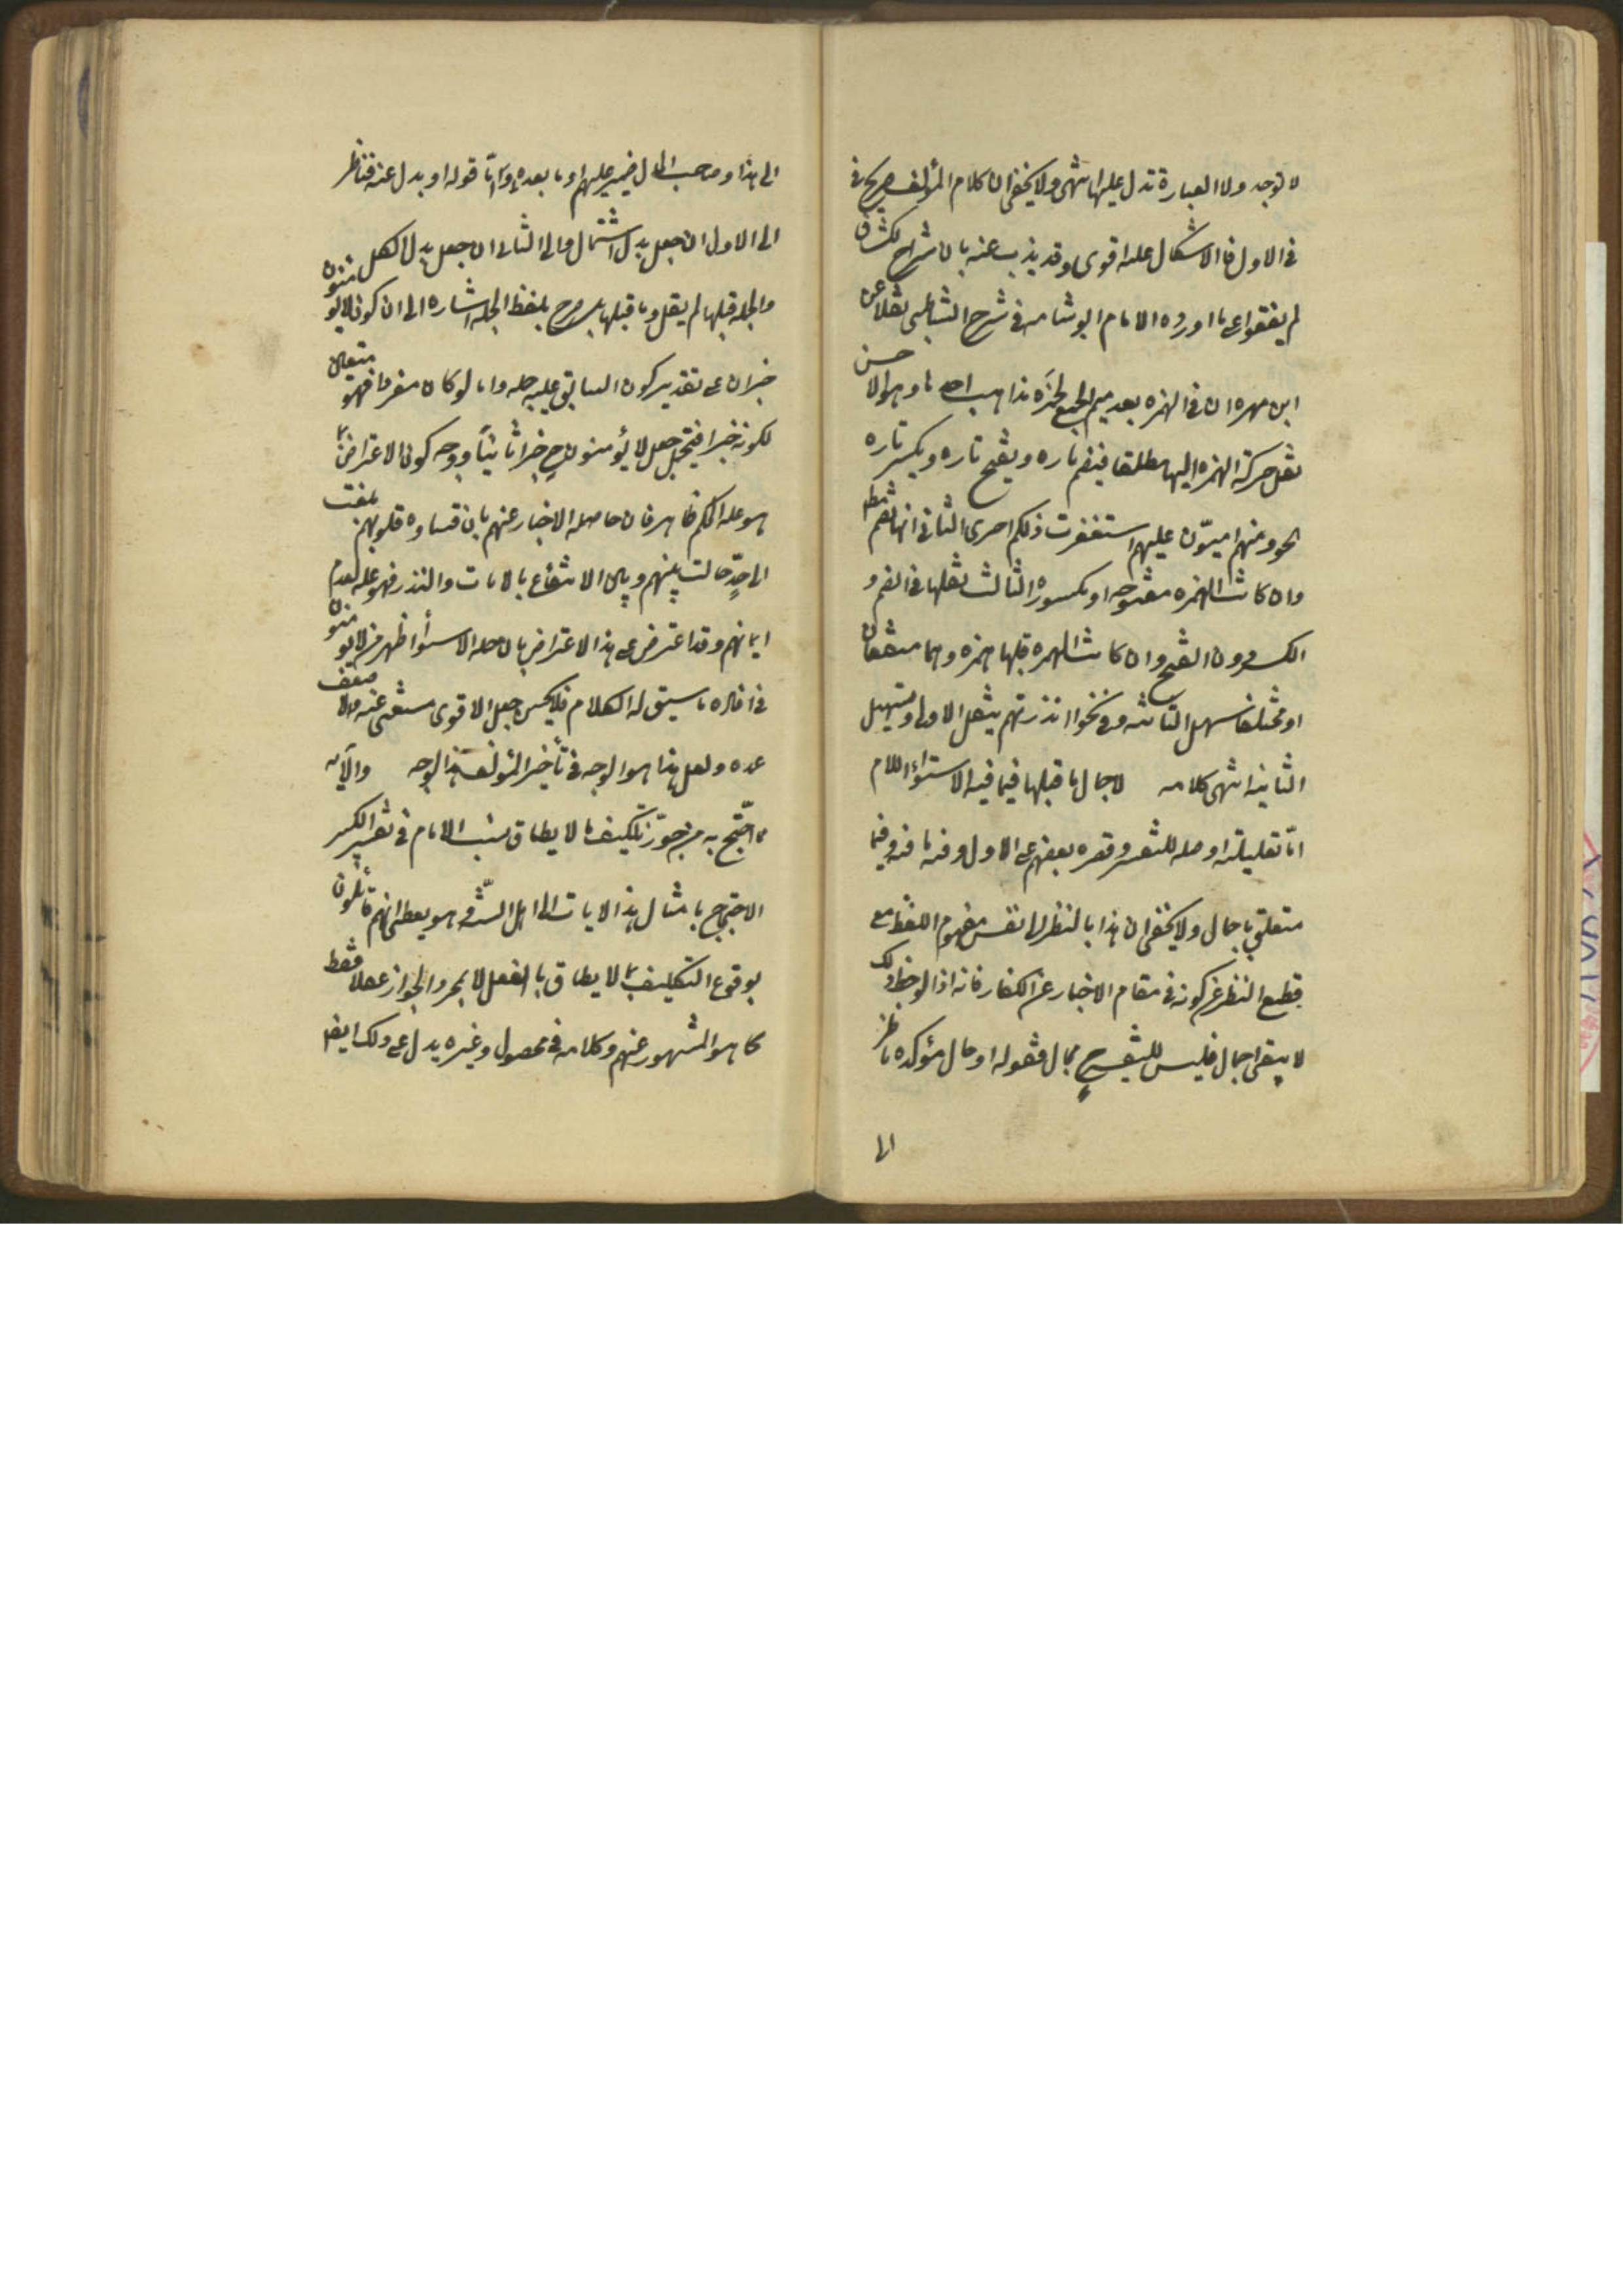 لا توجد ولا العبارة تدل عليها انتهى ولا يخفى ان كلام المؤلف صريح في
في الاول فالاشكال عليه اقوى وقد يذب عنه بان شراح الكشاف
لم يقفوا على ما اورده الامام ابو شامه في شرح الشاطبي نقلا عن
ابن مهران ان في الهمزه بعد ميم الجمع لحمزه مذاهب احدها وهو الاحسن
نقل حركة الهمزه اليها مطلقا فيضم تاره ويفتح تاره ويكسر تاره
نحو ومنهم اميّون عليهم استغفرت ذلكم اصرى الثاني انها تضم مط
وان كانت الهمزه مفتوحه او مكسوره الثالث نقلها في الضم و
الكسر دون الفتح وان كانت الهمزه قبلها همزه وهما متفقان
او مختلفان سهل الثانيه وفي نحو اانذرتهم ينقل الاولى ويسهل
الثانيه انتهى كلامه لاجمال ما قبلها فيما فيه الاستواء اللام
اما تعليلته او صله للتفسير وقصره بعضهم على الاول وفيه ما فيه وفيما
متعلق باجمال ولا يخفى ان هذا بالنظر الى نفس مفهوم اللفظ مع
قطع النظر عن كونه في مقام الاخبار عن الكفار فانه اذا لوحظ ذلك
لا يبقى اجمال فليس للتفسير ح مجال فقوله او حال مؤكده ناظر
الى
الى هذا وصاحب الحال ضمير عليهم او ما بعده وامّا قوله او بدل عنه فناظر
الى الاول ان جعل بدل اشتمال والى الثاني ان جعل بدل الكل
والجمله قبلها لم يقل وما قبلها بل صرح بلفظ الجمله اشاره الى ان كون لا يؤمنون
خبر ان على تقدير كون السابق عليه جمله واما لو كان مفردا فهو متعين
لكونه خبرا فيحتمل جعل لا يؤمنون ح خبرا ثانيا ووجه كون الاعتراض بما
هو عله الحكم ظاهر فان حاصله الاخبار عنهم بان قساوه قلوبهم بلغت
الى حدّ حالت بينهم وبين الانتفاع بالايات والنذر فهو عله لعدم
ايمانهم وقد اعترض على هذا الاعتراض بان جمله الاستوأ اظهر من لا يؤمنون
في افاده ما سيق له الكلام فلا يحسن جعل الاقوى مستغنى عنه والاضعف
عمده ولعل هذا هو الوجه في تأخير المؤلف هذا الوجه والآيه
مما احتج به من جوّز تكليف ما لا يطاق نسب الامام في تفسير الكبير
الاحتجاج بامثال هذه الايات الى اهل السنّة وهو يعطى انهم قائلون
بوقوع التكليف بما لا يطاق بالفعل لا بمجرد الجواز عقلا فقط
كما هو المشهور عنهم وكلامه في محصول وغيره يدل على ذلك ايضا